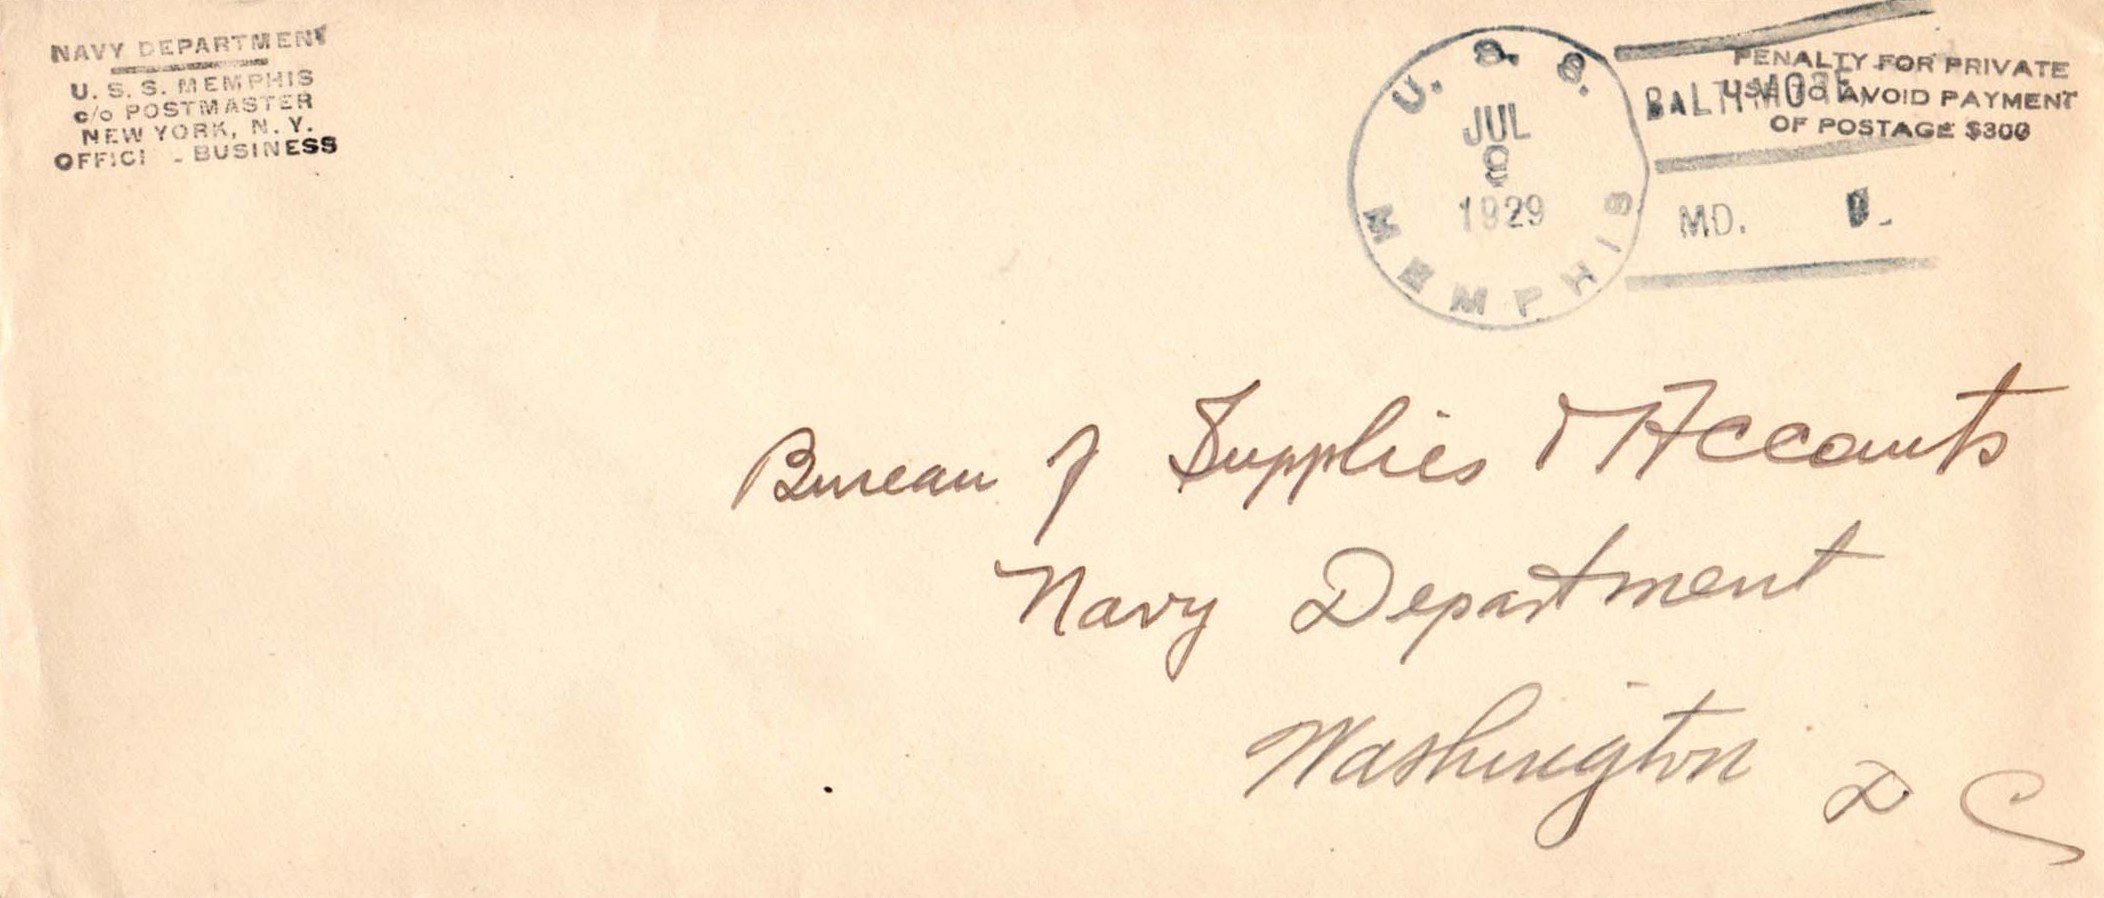 NAVY DEPARTMENT
U. S. S. MEMPHIS
c/o POSTMASTER
NEW YORK, N. Y.
OFFICI   BUSINESS
U. S. S.
MEMPHIS
JUL
8
1929
BALTIMORE,
MD.
PENALTY FOR PRIVATE
USE TO AVOID PAYMENT
OF POSTAGE $300
Bureau of Supplies & Accounts
Navy Department
Washington D C